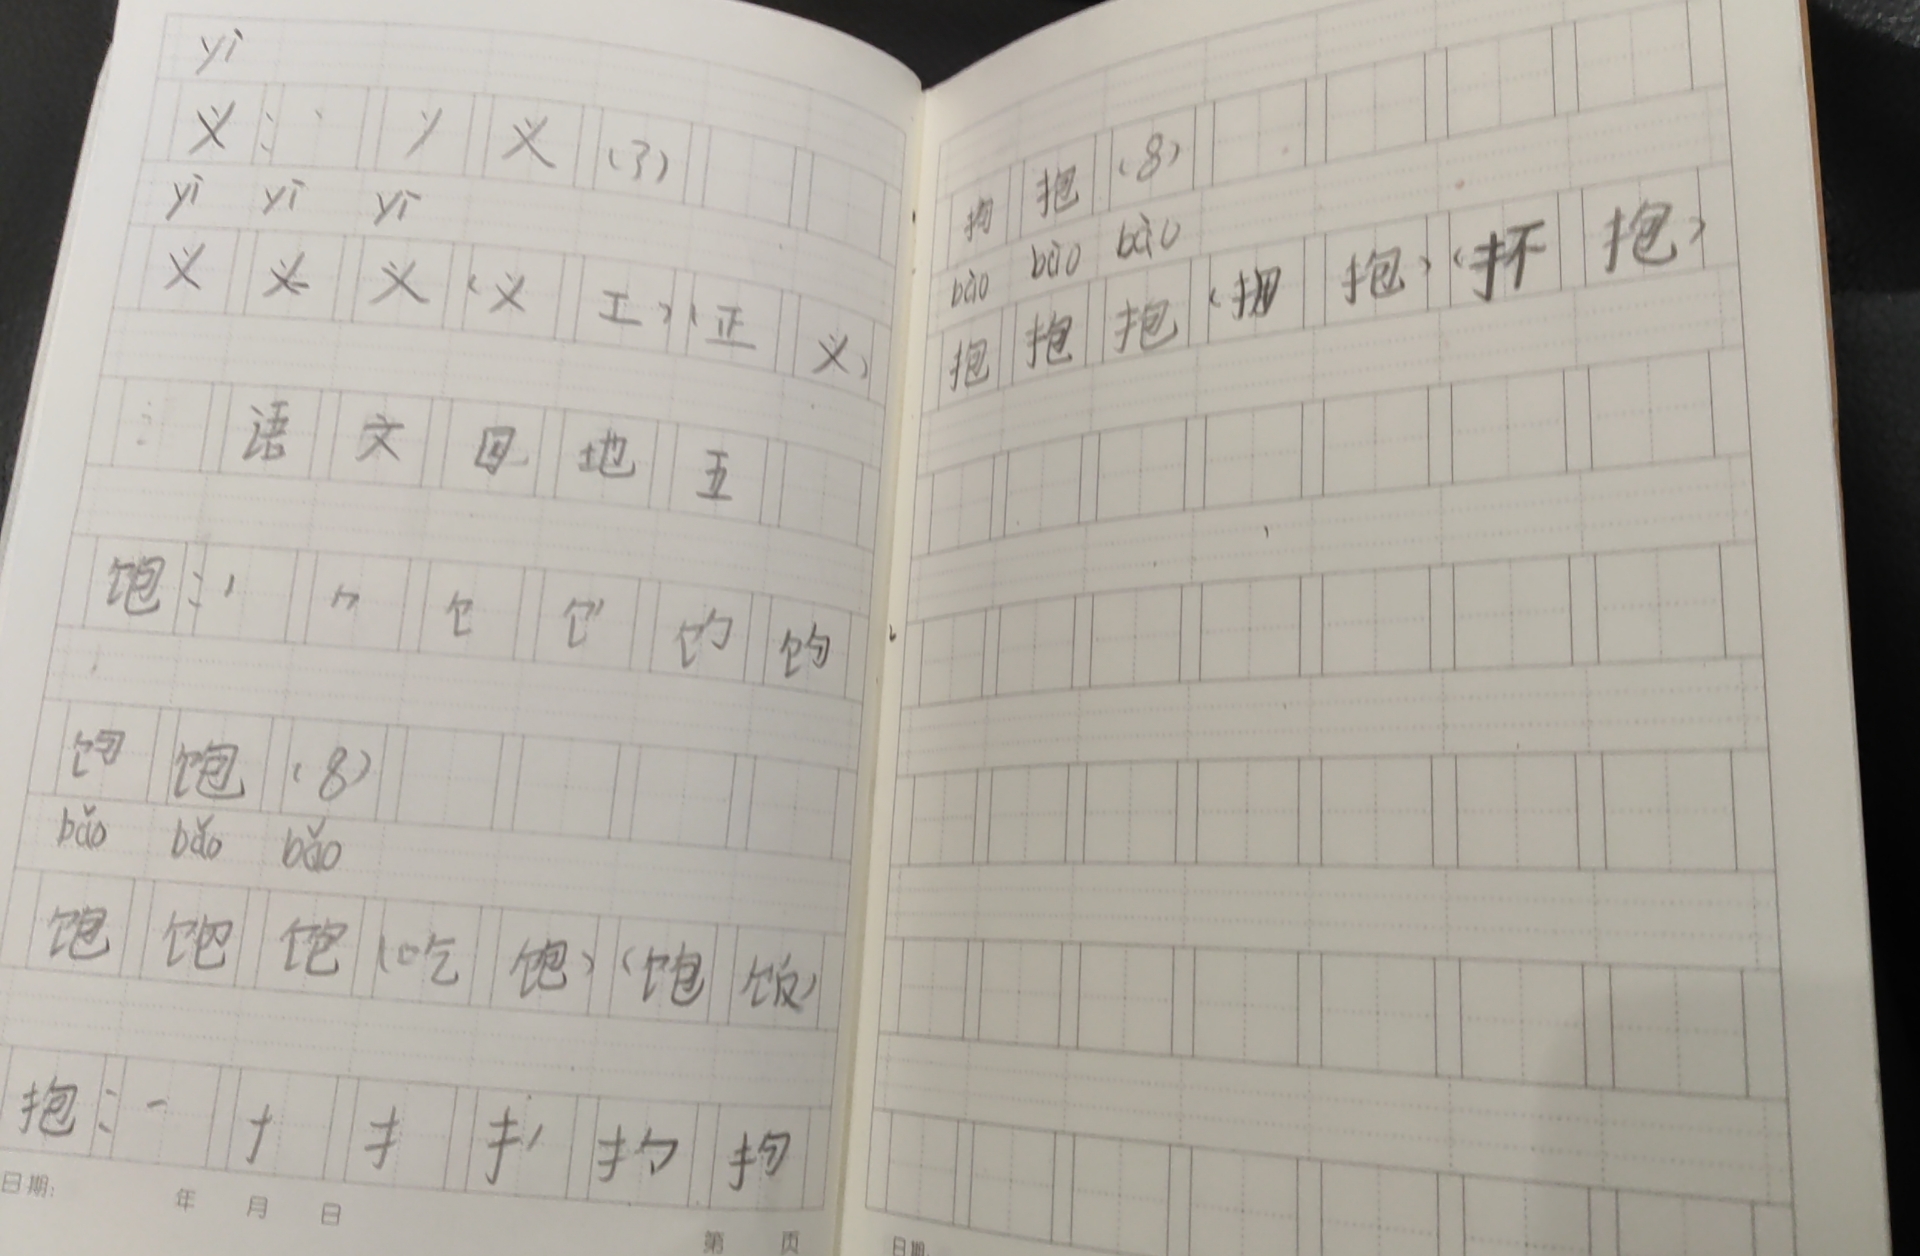 yì
义：丶 丷 义 (3)
yì yì yì
义 义 义 (义 工) (正 义)
语 文 园 地 五
饱：丿 𠂊 饣
饱 (8)
bǎo bǎo bǎo
饱 饱 饱 (吃 饱) (饱 饭)
抱：一 十 扌
日期： 年 月 日
第 页
抱 (8)
bào bào bào
抱 抱 抱 (拥 抱) (抔 抱)
日期：